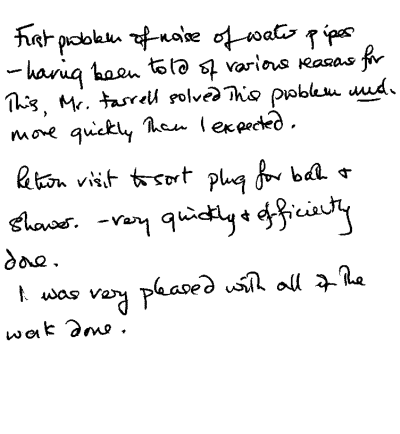 First problem of noise of water pipes
- having been told of various reasons for
this, Mr. Farrell solved this problem much
more quickly than I expected.
Return visit to sort plug for bath &
shower. - very quickly & efficiently
done.
I was very pleased with all of the
work done.